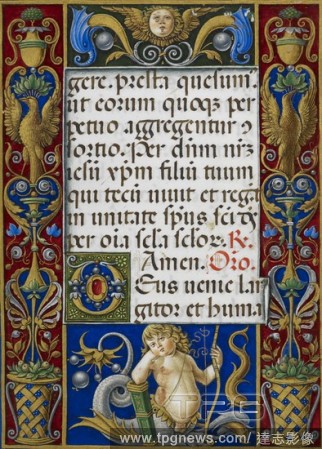 gere. presta quesum
ut eorum quoqz per
petuo aggregentur ↄ
sortio. Per dnm nrz
iesu xpm filiu tuum
qui tecu uiuit et reg
in unitate spus sci
per oia secla seclor. R.
Amen. Oro.
Deus uenie lar
gitor et huma
TPG
www.tpgnews.com/ 達志影像